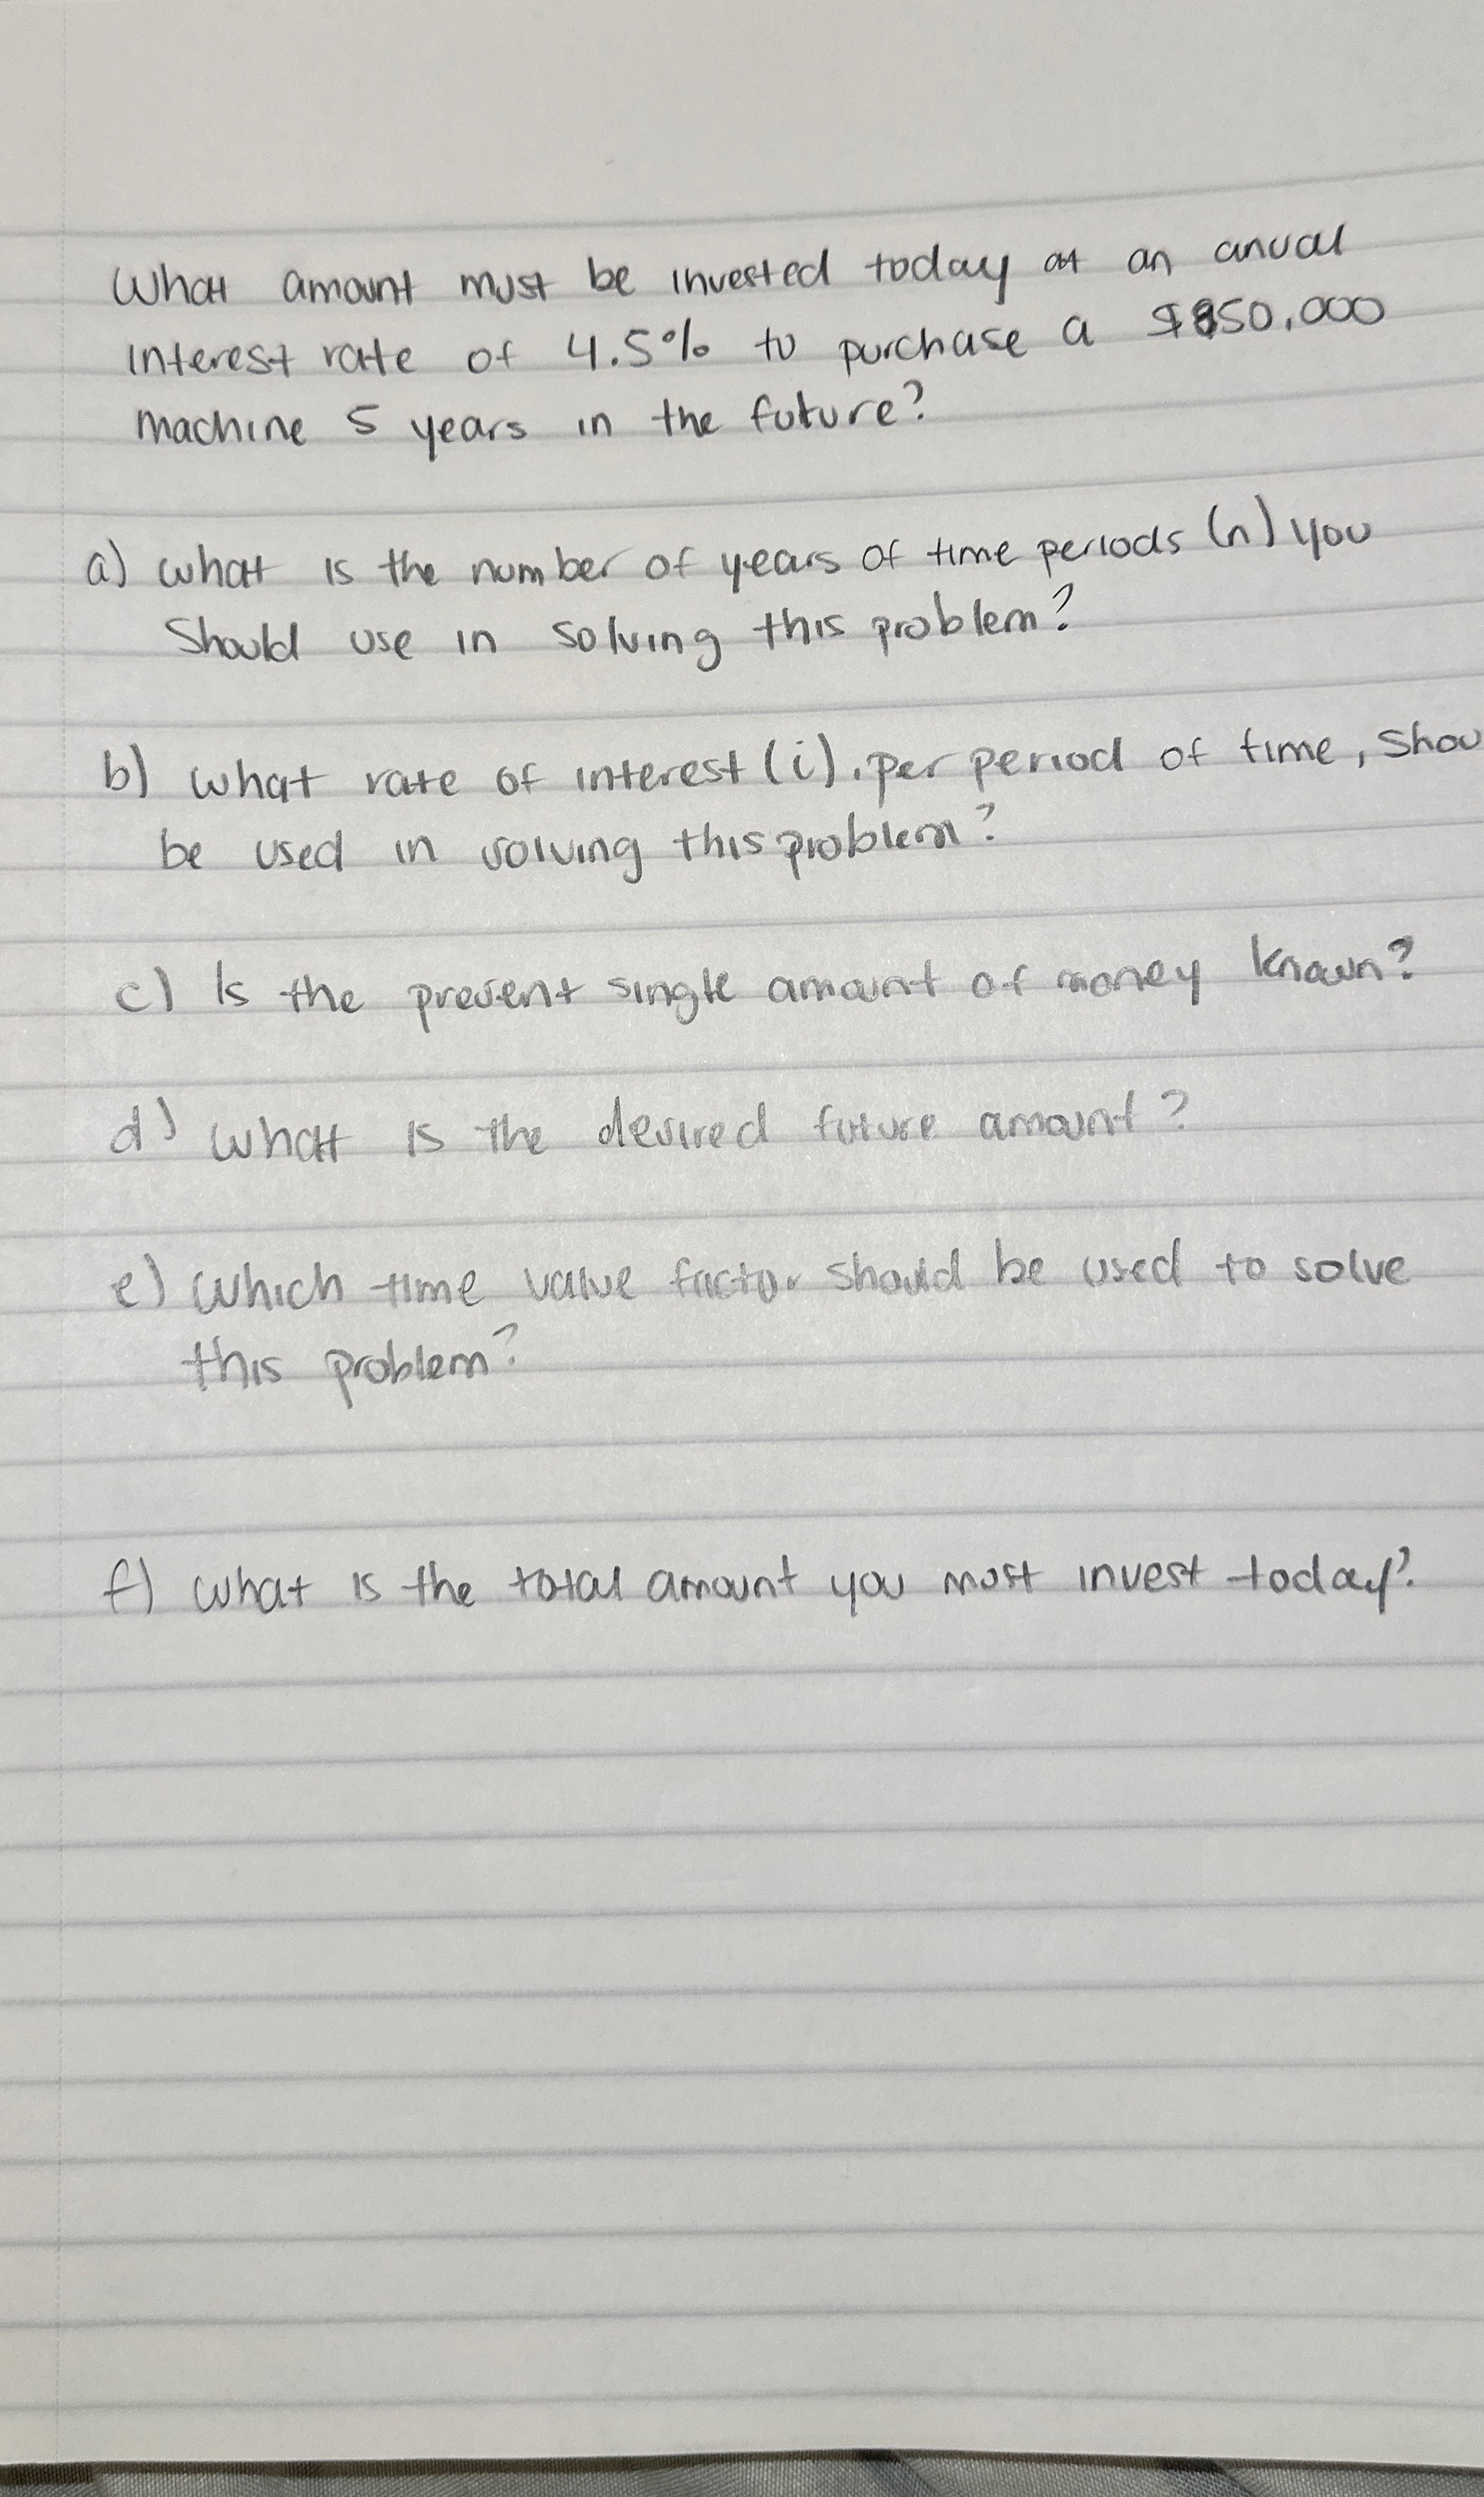 What amount must be invested today at an anual
interest rate of 4.5% to purchase a $850,000
machine 5 years in the future?
a) what is the number of years of time periods (n) you
Should use in solving this problem?
b) what rate of interest (i), per period of time, shou
be used in solving this problem?
c) Is the present single amount of money known?
d) what is the desired future amount?
e) which time value factor should be used to solve
this problem?
f) what is the total amount you most invest today?